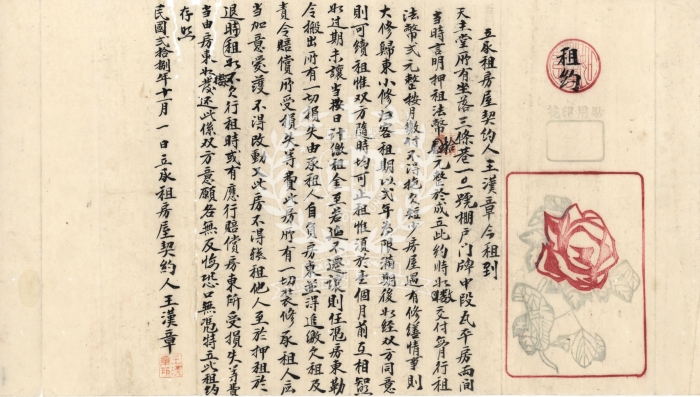 租约
立承租房屋契約人王漢章今租到
天主堂所有坐落三條巷一二號棚戶门牌中段瓦平房両间
當時言明押租法幣拾元整於成立此約時如數交付每月行租
法幣弍元整按月繳付不得拖欠短少房屋遇有修繕情事則
大修歸東小修归客租期以弍年為限满期後如经双方同意
則可續租惟双方隨時均可止租惟須於壹個月前互相知照
如过期未讓當按日計繳租金至若延不遷讓則任凴房東勒
令搬出所有一切損失由承租人自負房東並得追繳欠租及
責令賠償所受損失等費此房所有一切裝修承租人应
當加意爱護不得改動又此房不得轉租他人至於押租於
退時租如不欠行租時或有應行賠償房東所受損失等費
當由房東如數发还此係双方意願各無反悔恐口無凴特立此租约
存照
民國弍拾捌年十一月一日立承租房屋契約人王漢章